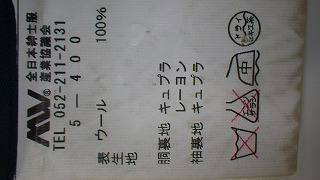 MW®
全日本紳士服
産業協議会
TEL 052-211-2131
5-400
表生地 ウール 100%
胴裏地 キュプラ
レーヨン
袖裏地 キュプラ
中
エンソサラシ
ドライ
セキユ系